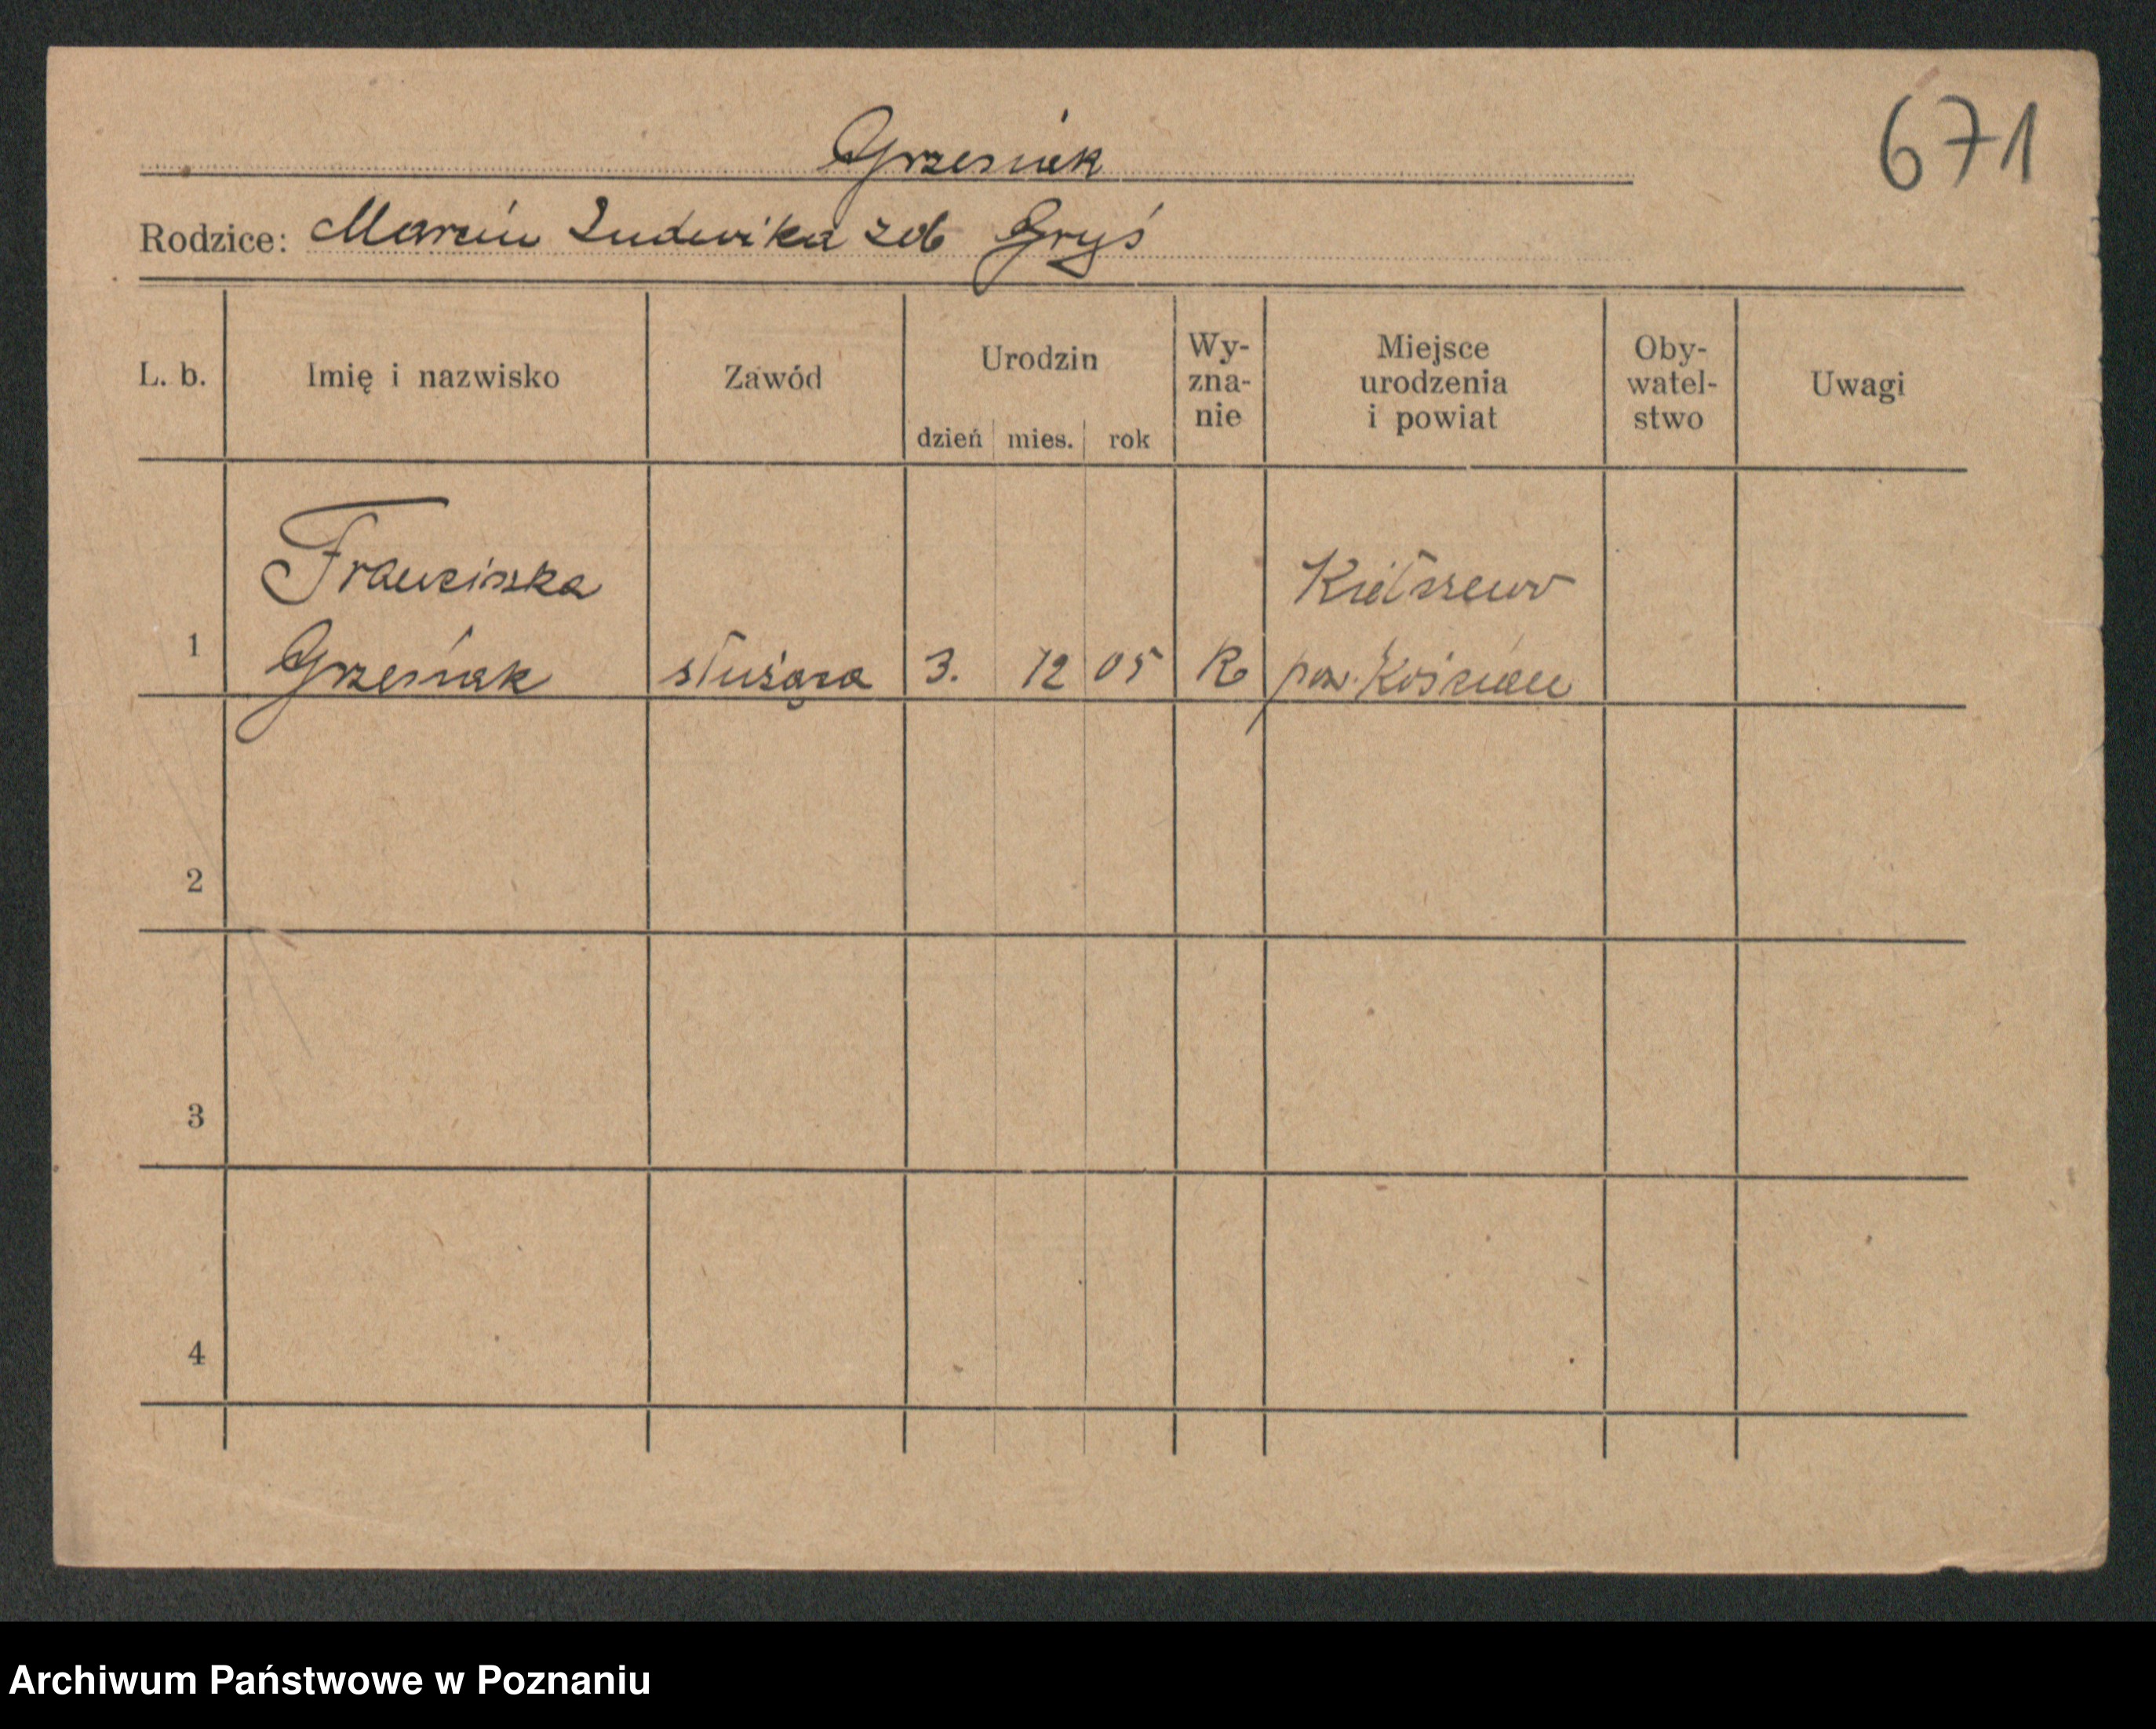 671
Grzesiak
Rodzice: Marcin Ludwika zd Gryś
L. b. Imię i nazwisko Zawód Urodzin dzień mies. rok Wy-zna-nie Miejsce urodzenia i powiat Oby-watel-stwo Uwagi
Franciszka Kiełszewo
1 Grzesiak służąca 3. 12 05 pow. Kościan
2
3
4
Archiwum Państwowe w Poznaniu